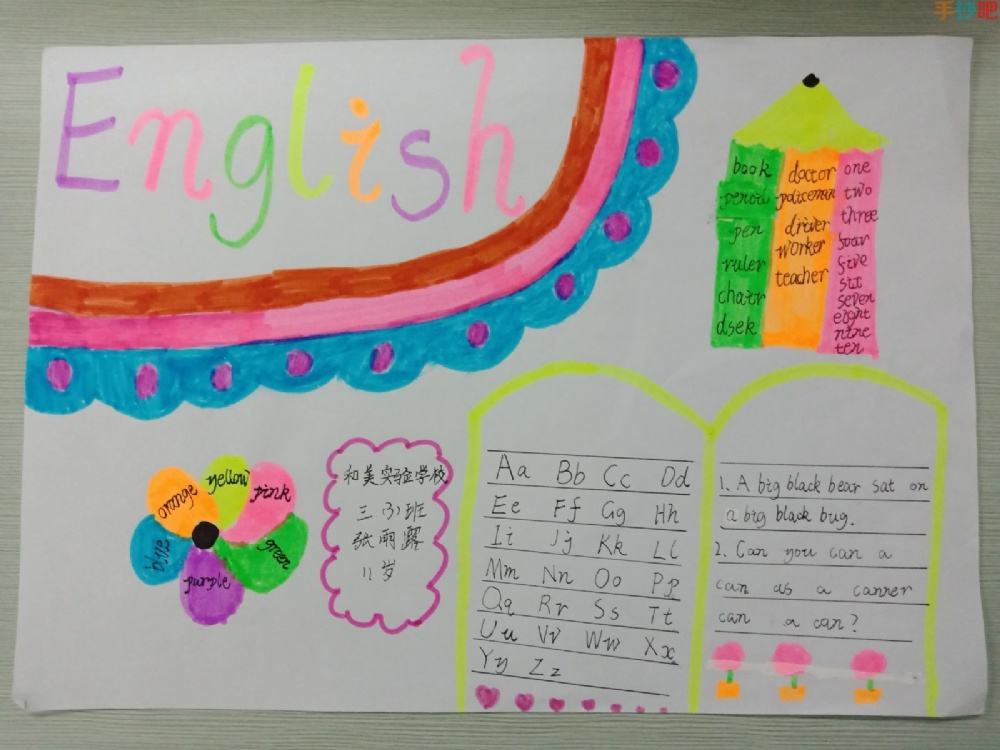 手抄吧
English
book
pen
ruler
chair
dsek
doctor
policeman
driver
worker
teacher
one
two
three
four
five
six
seven
eight
nine
ten
orange
yellow
pink
green
purple
blue
和美实验学校
三(3)班
张雨露
11岁
Aa Bb Cc Dd
Ee Ff Gg Hh
Ii Jj Kk Ll
Mm Nn Oo Pp
Qq Rr Ss Tt
Uu Vv Ww Xx
Yy Zz
1. A big black bear sat on
a big black bug.
2. Can you can a
can as a canner
can a can?